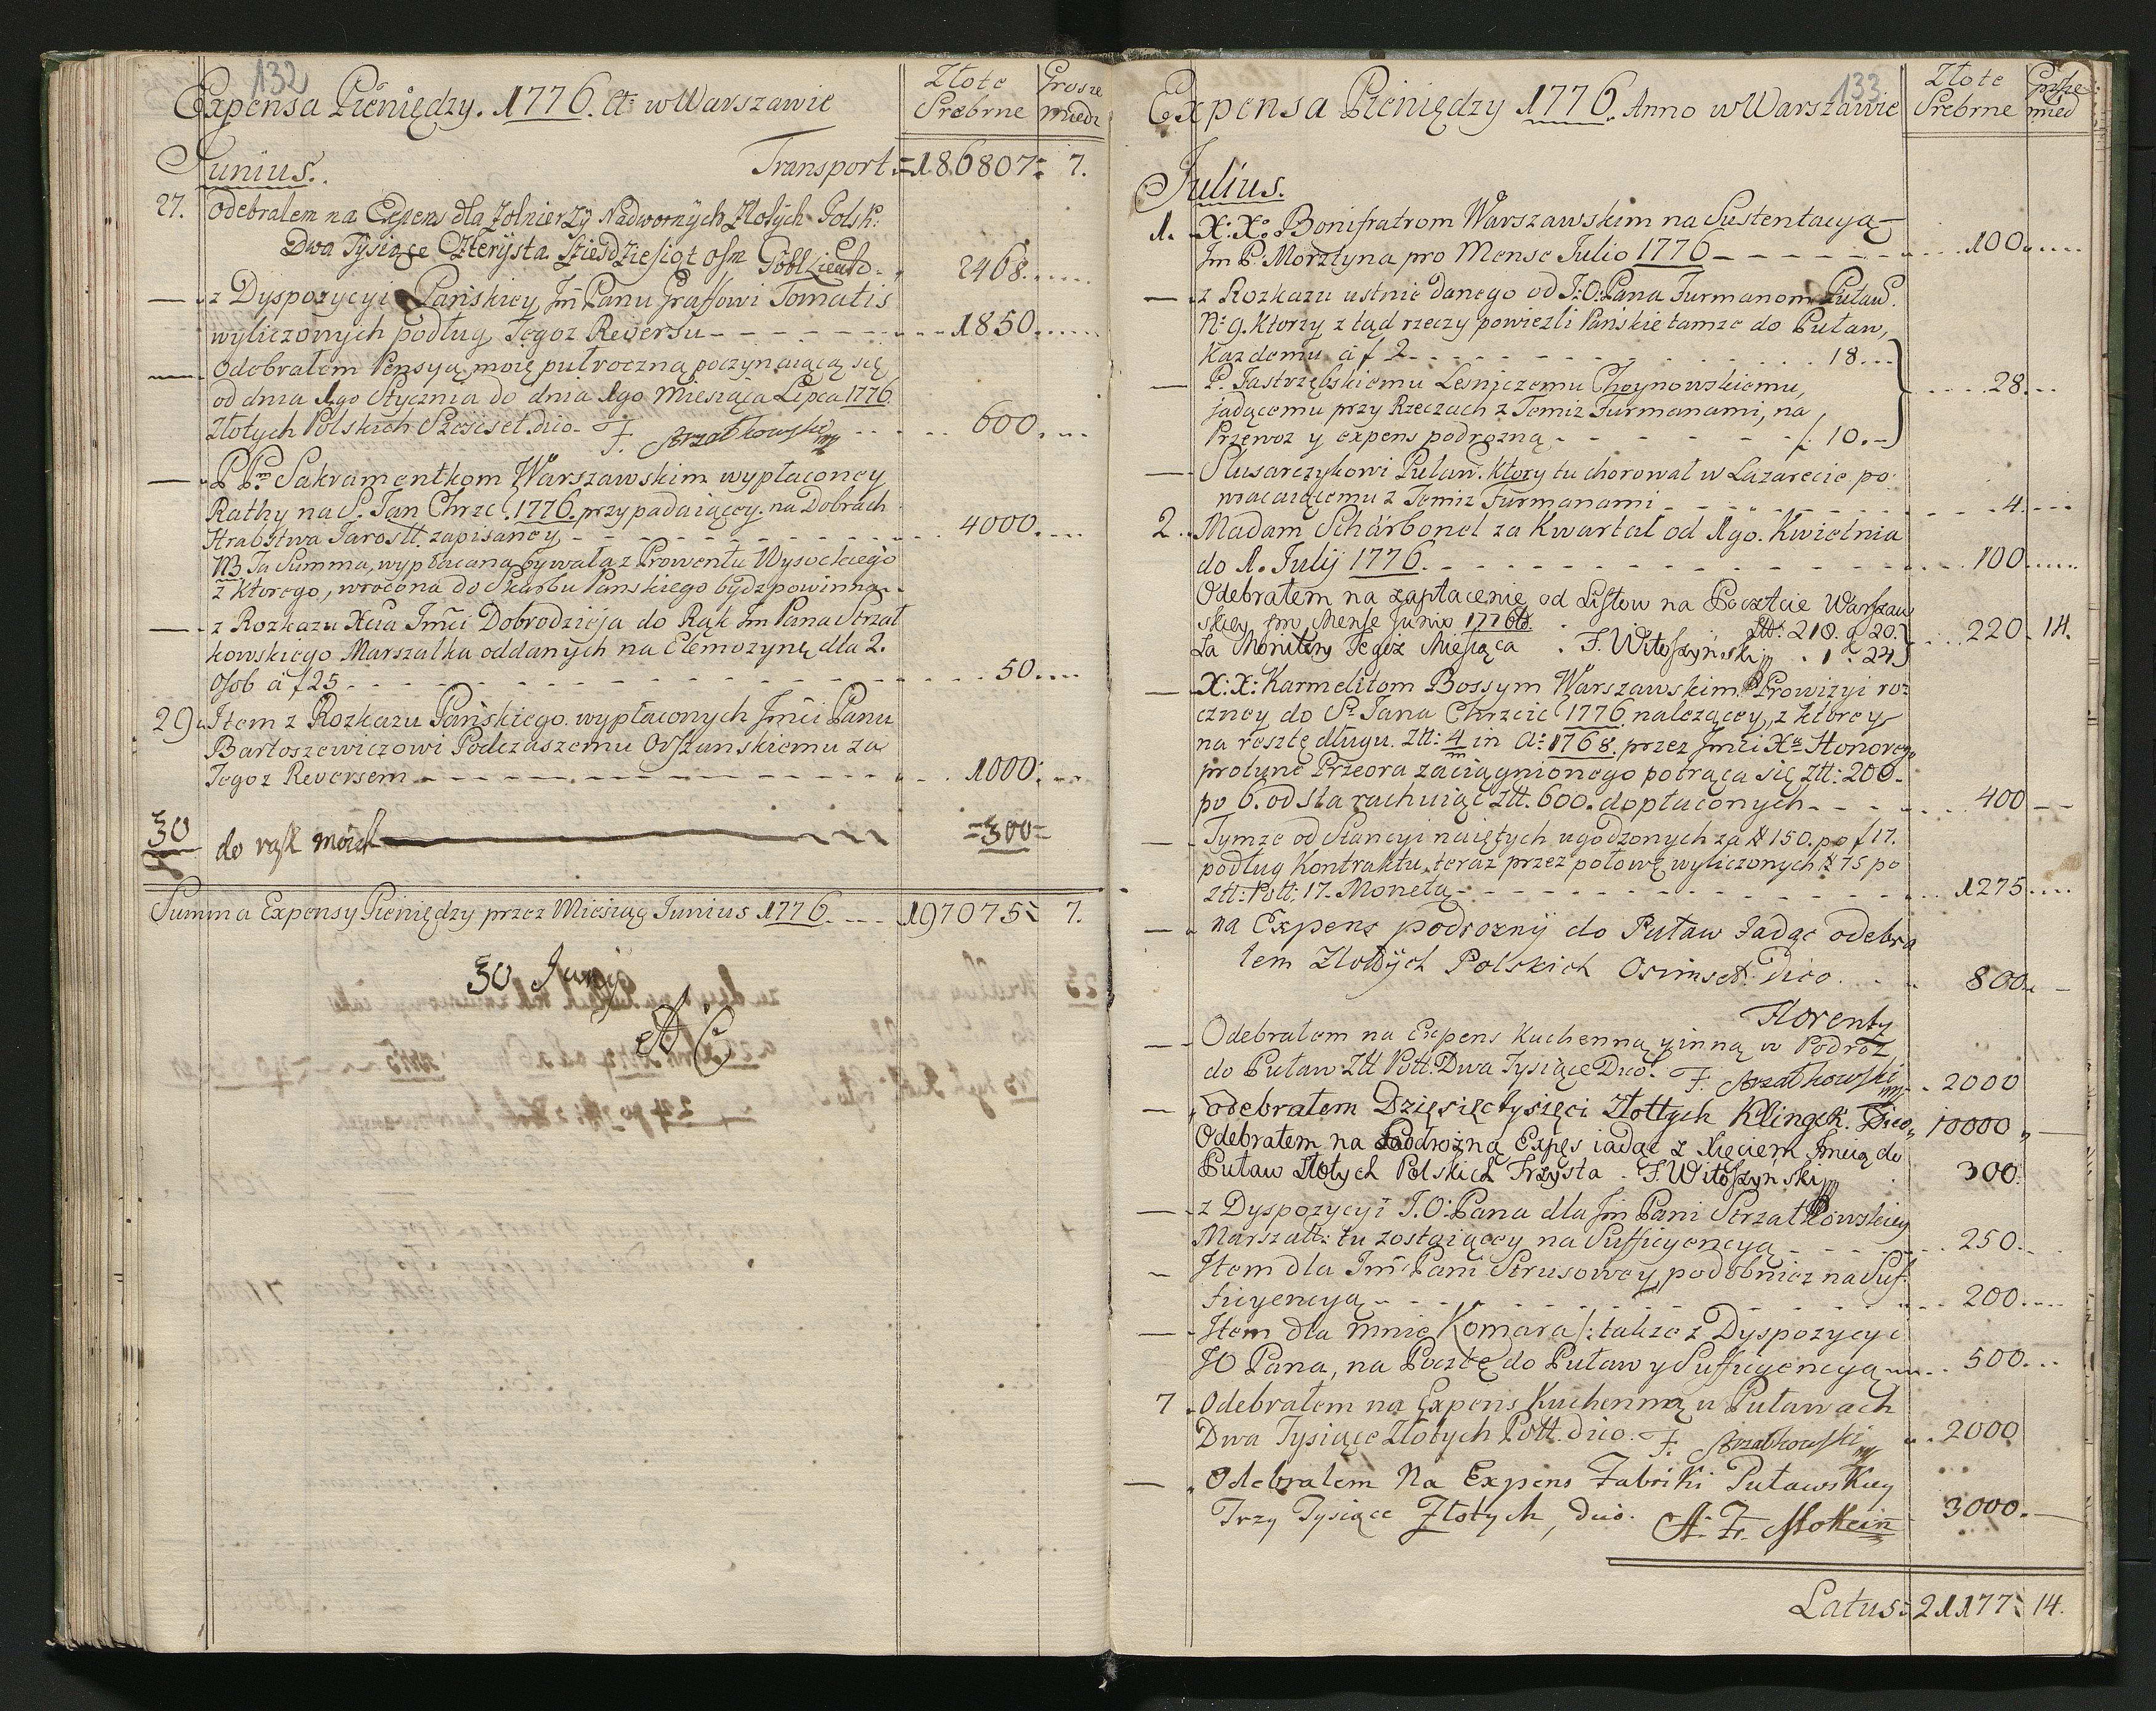 132
Expensa Pieniędzy. 1776. A: w Warszawie
Złote Srebrne
Grosze miedz
Junius.
Transport = 186807 = 7.
27. Odebrałem na Expens dla Zołnierzy Nadwornych Złotych Polsk:
Dwa Tysiące Czterysta Sześdziesiąt osm 2468.....
— z Dyspozycyi Pańskiey Jm̃ Panu Graffowi Tomatis
wyliczonych podług Tegoz Reversu - - - - - - 1850.....
— Odebrałem Pensyą moię pułroczną poczynaiącą się
od dnia 1go Stycznia do dnia 1go Miesiąca Lipca 1776
Złotych Polskich Sześćset. dico - F. Strzałkowski mp 600....
— P Pm Sakramentkom Warszawskim wypłaconey
Rathy na S. Jan Chrzc. 1776. przypadaiącey. na Dobrach
Hrabstwa Jarosł. zapisaney - - - - - - 4000....
NB Ta Summa, wypłacana bywała z Prowentu Wysockiego
z ktorego, wrocona do Skarbu Panskiego bydz powinna..
— z Rozkazu Xcia Jm̃ci Dobrodzieja do Rąk Jm Pana Strzał
kowskiego Marszałka oddanych na Elemozynę dla 2.
Osob a f 25 - - - - - - 50....
29. Item z Rozkazu Pańskiego. wypłaconych Jm̃ci Panu
Bartoszewiczowi Podczaszemu Orszanskiemu za
Tegoz Reversem - - - - - - 1000....
30 do rąk moich — = 300 =
Summa Expensy Pieniędzy przez Miesiąc Junius 1776. - - - 197075 = 7.
30 Junij
A C
133
Expensa Pieniędzy 1776. Anno w Warszawie
Złote Srebrne
Grosze mied
Julius.
1. X: X: Bonifratrom Warszawskim na Sustentacyą
Jm P. Morztyna pro Mense Julio 1776 - - - - - - 100.....
— z Rozkazu ustnie danego od J:O: Pana Furmanom Puław.
Nº 9. Ktorzy z tąd rzeczy powiezli Pańskie tamze do Puław,
Kazdemu a f 2 - - - - - - 18...
— P. Jastrzębskiemu Leśniczemu Choynowskiemu, 28...
jadącemu przy Rzeczach z Temiz Furmanami, na
Przewoz y expens podrozną - - - - - f. 10.-
— Slusarczykowi Puław. ktory tu chorował w Lazarecie po
wracaiącemu z Temiz Furmanami - - - - - - 4....
2. Madam Schárbonel za Kwartał od 1go. Kwietnia
do 1. Julij 1776. - - - - - - 100.....
Odebrałem na zapłacenie od Listow na Poczcie Warszaw
skiey pro Mense Junio 1776to. Złł: 218. g 20.
za Monitory Tegoz Miesiąca . J. Witoszyński mp . 1 : 24 220. 14.
— X: X: Karmelitom Bossym Warszawskim Prowizyi ro
czney do S. Jana Chrzcic 1776 należącey, z ktorey
na resztę długu. Złł: 4 m in A: 1768. przez Jm̃ci Xa Honorego
protunc Przeora zaciągnionego potrąca się Złł: 200.
po 6. od sta rachuiąc Złł. 600. dopłaconych - - - - 400 - -
— Tymze od Stancyi naiętych ugodzonych za # 150. po f 17.
podług Kontraktu, teraz przez połowę wyliczonych # 75 po
Złł: Poll: 17. Monetą - - - - - - 1275....
— na Expens podrozny do Puław Jadąc odebra
łem Złotych Polskich Osimset. Dico. . . 800. -
Florenty
— Odebrałem na Expens kuchenną y inną w Podroz
do Puław Złł Poll. Dwa Tysiące Dico. F. Strzałkowski mp 2000
— odebrałem Dziesięć tysięci Złottych Klingek. Dico, 10000 „ —
Odebrałem na Podrożną Expęs iadąc z Xięciem Jmcią do
Puław Złotych Polskich Trzysta . J. Witoszyński mp 300.
— z Dyspozycyi J.O: Pana dla Jm̃ Pani Strzałkowskiey
Marszałk: tu zostaiącey na Sufficyencyą - - - - 250...
— Item dla Jm̃ Pani Strusowey, podobniez na Suf
ficyencyą - - - - - - 200....
— Item dla mnie Komara /: takze z Dyspozycyi
JO Pana, na Pocztę do Puław y Sufficyencyą 500...
7 Odebrałem na Expens Kuchenną w Puławach
Dwa Tysiące Złotych Poll. dico. F. Strzałkowski mp 2000
— Odebralem Na Expens Fabriki Puławskiey
Trzy Tysiące Złotych, dico. 3000. —
Latus = 21177 = 14.